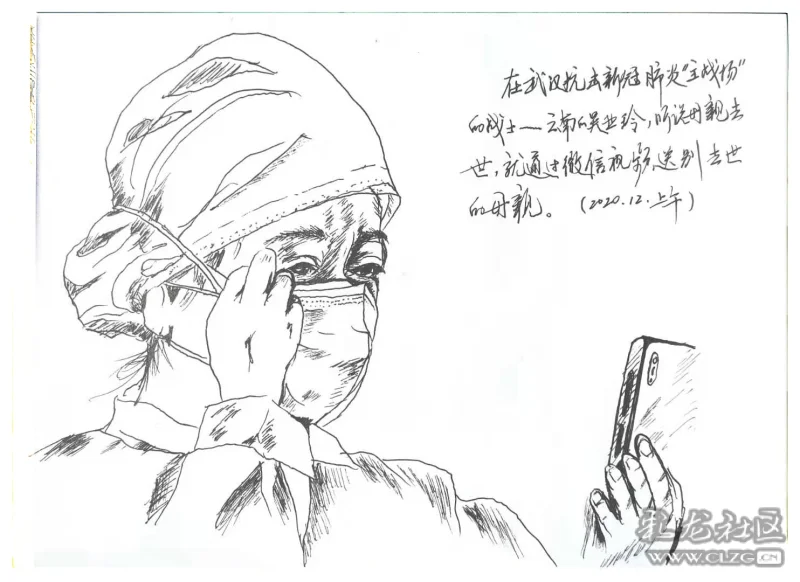 在武汉抗击新冠肺炎“主战场”
的战士——云南的吴亚玲,听说母亲去
世,就通过微信视频送别去世
的母亲。(2020.12.上午)
麒龙社区
WWW.CLZG.CN